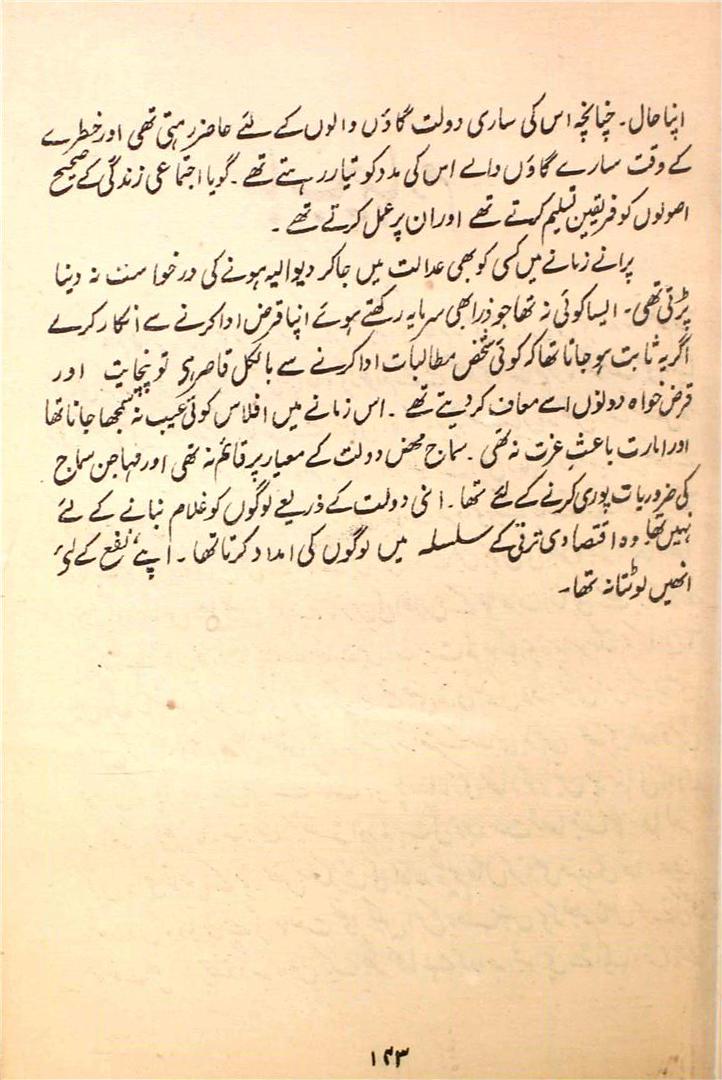 اپنا حال۔ چنانچہ اس کی ساری دولت گاؤں والوں کے لئے حاضر رہتی تھی اور خطرے
کے وقت سارے گاؤں والے اس کی مدد کو تیار رہتے تھے۔ گویا اجتماعی زندگی کے صحیح
اصولوں کو فریقین تسلیم کرتے تھے اور ان پر عمل کرتے تھے۔
پرانے زمانے میں کسی کو بھی عدالت میں جا کر دیوالیہ ہونے کی درخواست نہ دینا
پڑتی تھی۔ ایسا کوئی نہ تھا جو ذرا بھی سرمایہ رکھتے ہوئے اپنا قرض ادا کرنے سے انکار کرے
اگر یہ ثابت ہو جاتا تھا کہ کوئی شخص مطالبات ادا کرنے سے بالکل قاصر ہی تو پنچایت اور
قرض خواہ دونوں اسے معاف کر دیتے تھے۔ اس زمانے میں افلاس کوئی عیب نہ سمجھا جاتا تھا
اور امارت باعثِ عزت نہ تھی۔ سماج محض دولت کے معیار پر قائم نہ تھی اور مہاجن سماج
کی ضروریات پوری کرنے کے لئے تھا۔ اپنی دولت کے ذریعے لوگوں کو غلام بنانے کے لئے
نہیں تھا وہ اقتصادی ترقی کے سلسلہ میں لوگوں کی امداد کرتا تھا۔ اپنے نفع کے لئے
انھیں لوٹتا نہ تھا۔
۱۴۳